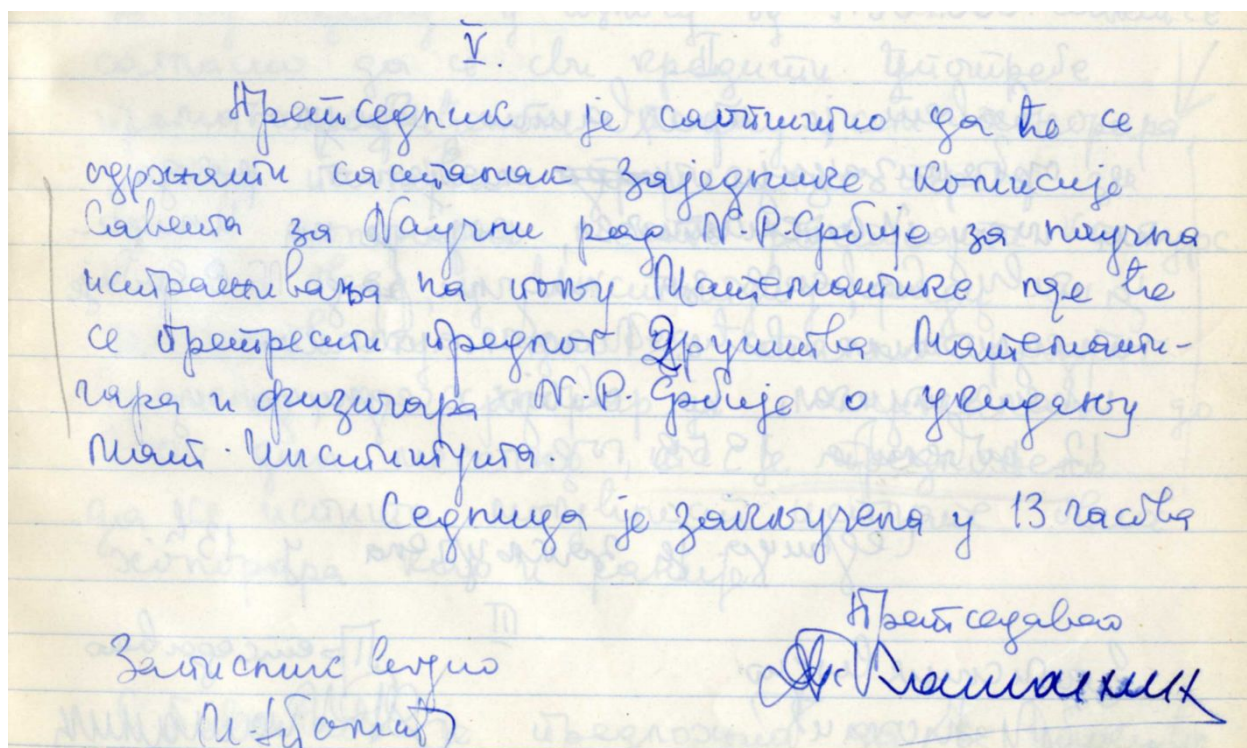 V.
Претседник је саопштио да ће се
одржати састанак Заједничке Комисије
Савета за Научни рад Н.Р.Србије за научна
истраживања на пољу Математике где ће
се претрести предлог Друштва Математи-
чара и физичара Н.Р.Србије о укидању
Мат. Института.
Седница је закључена у 13 часова
Претседавао
Записник водио